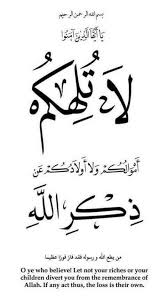 بسم الله الرحمن الرحيم
يَا أَيُّهَا الَّذِينَ آمَنُوا
لَا تُلْهِكُمْ
أَمْوَالُكُمْ وَلَا أَوْلَادُكُمْ عَنْ
ذِكْرِ اللَّهِ
من يطع الله و رسوله فقد فاز فوزا عظيما
O ye who believe! Let not your riches or your
children divert you from the remembrance of
Allah. If any act thus, the loss is their own.